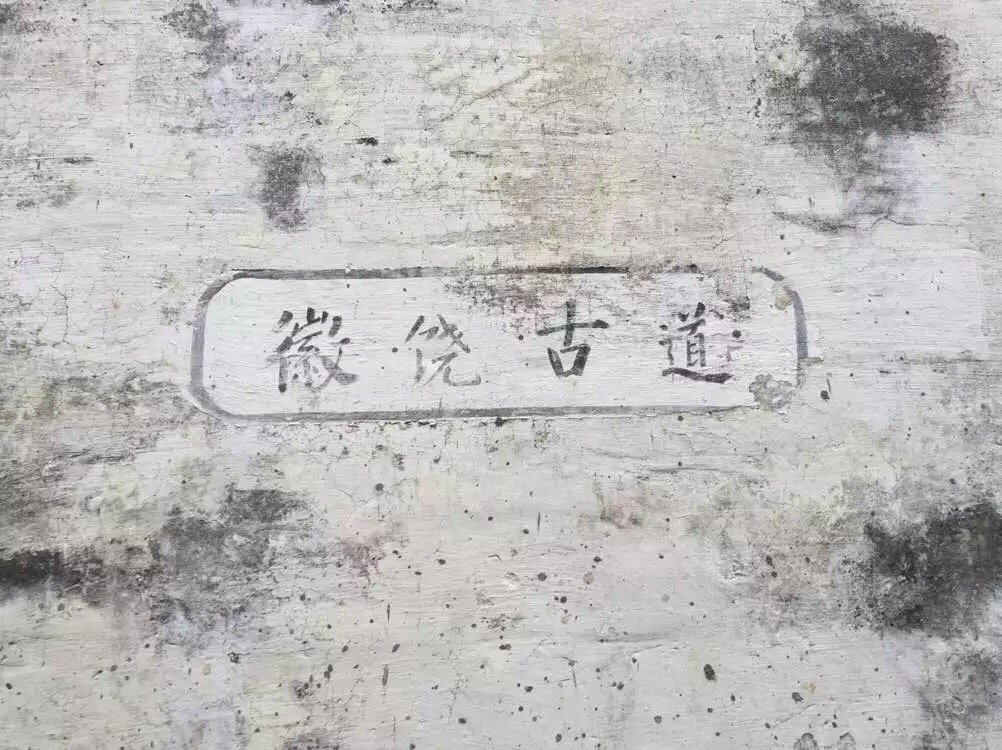 徽饶古道